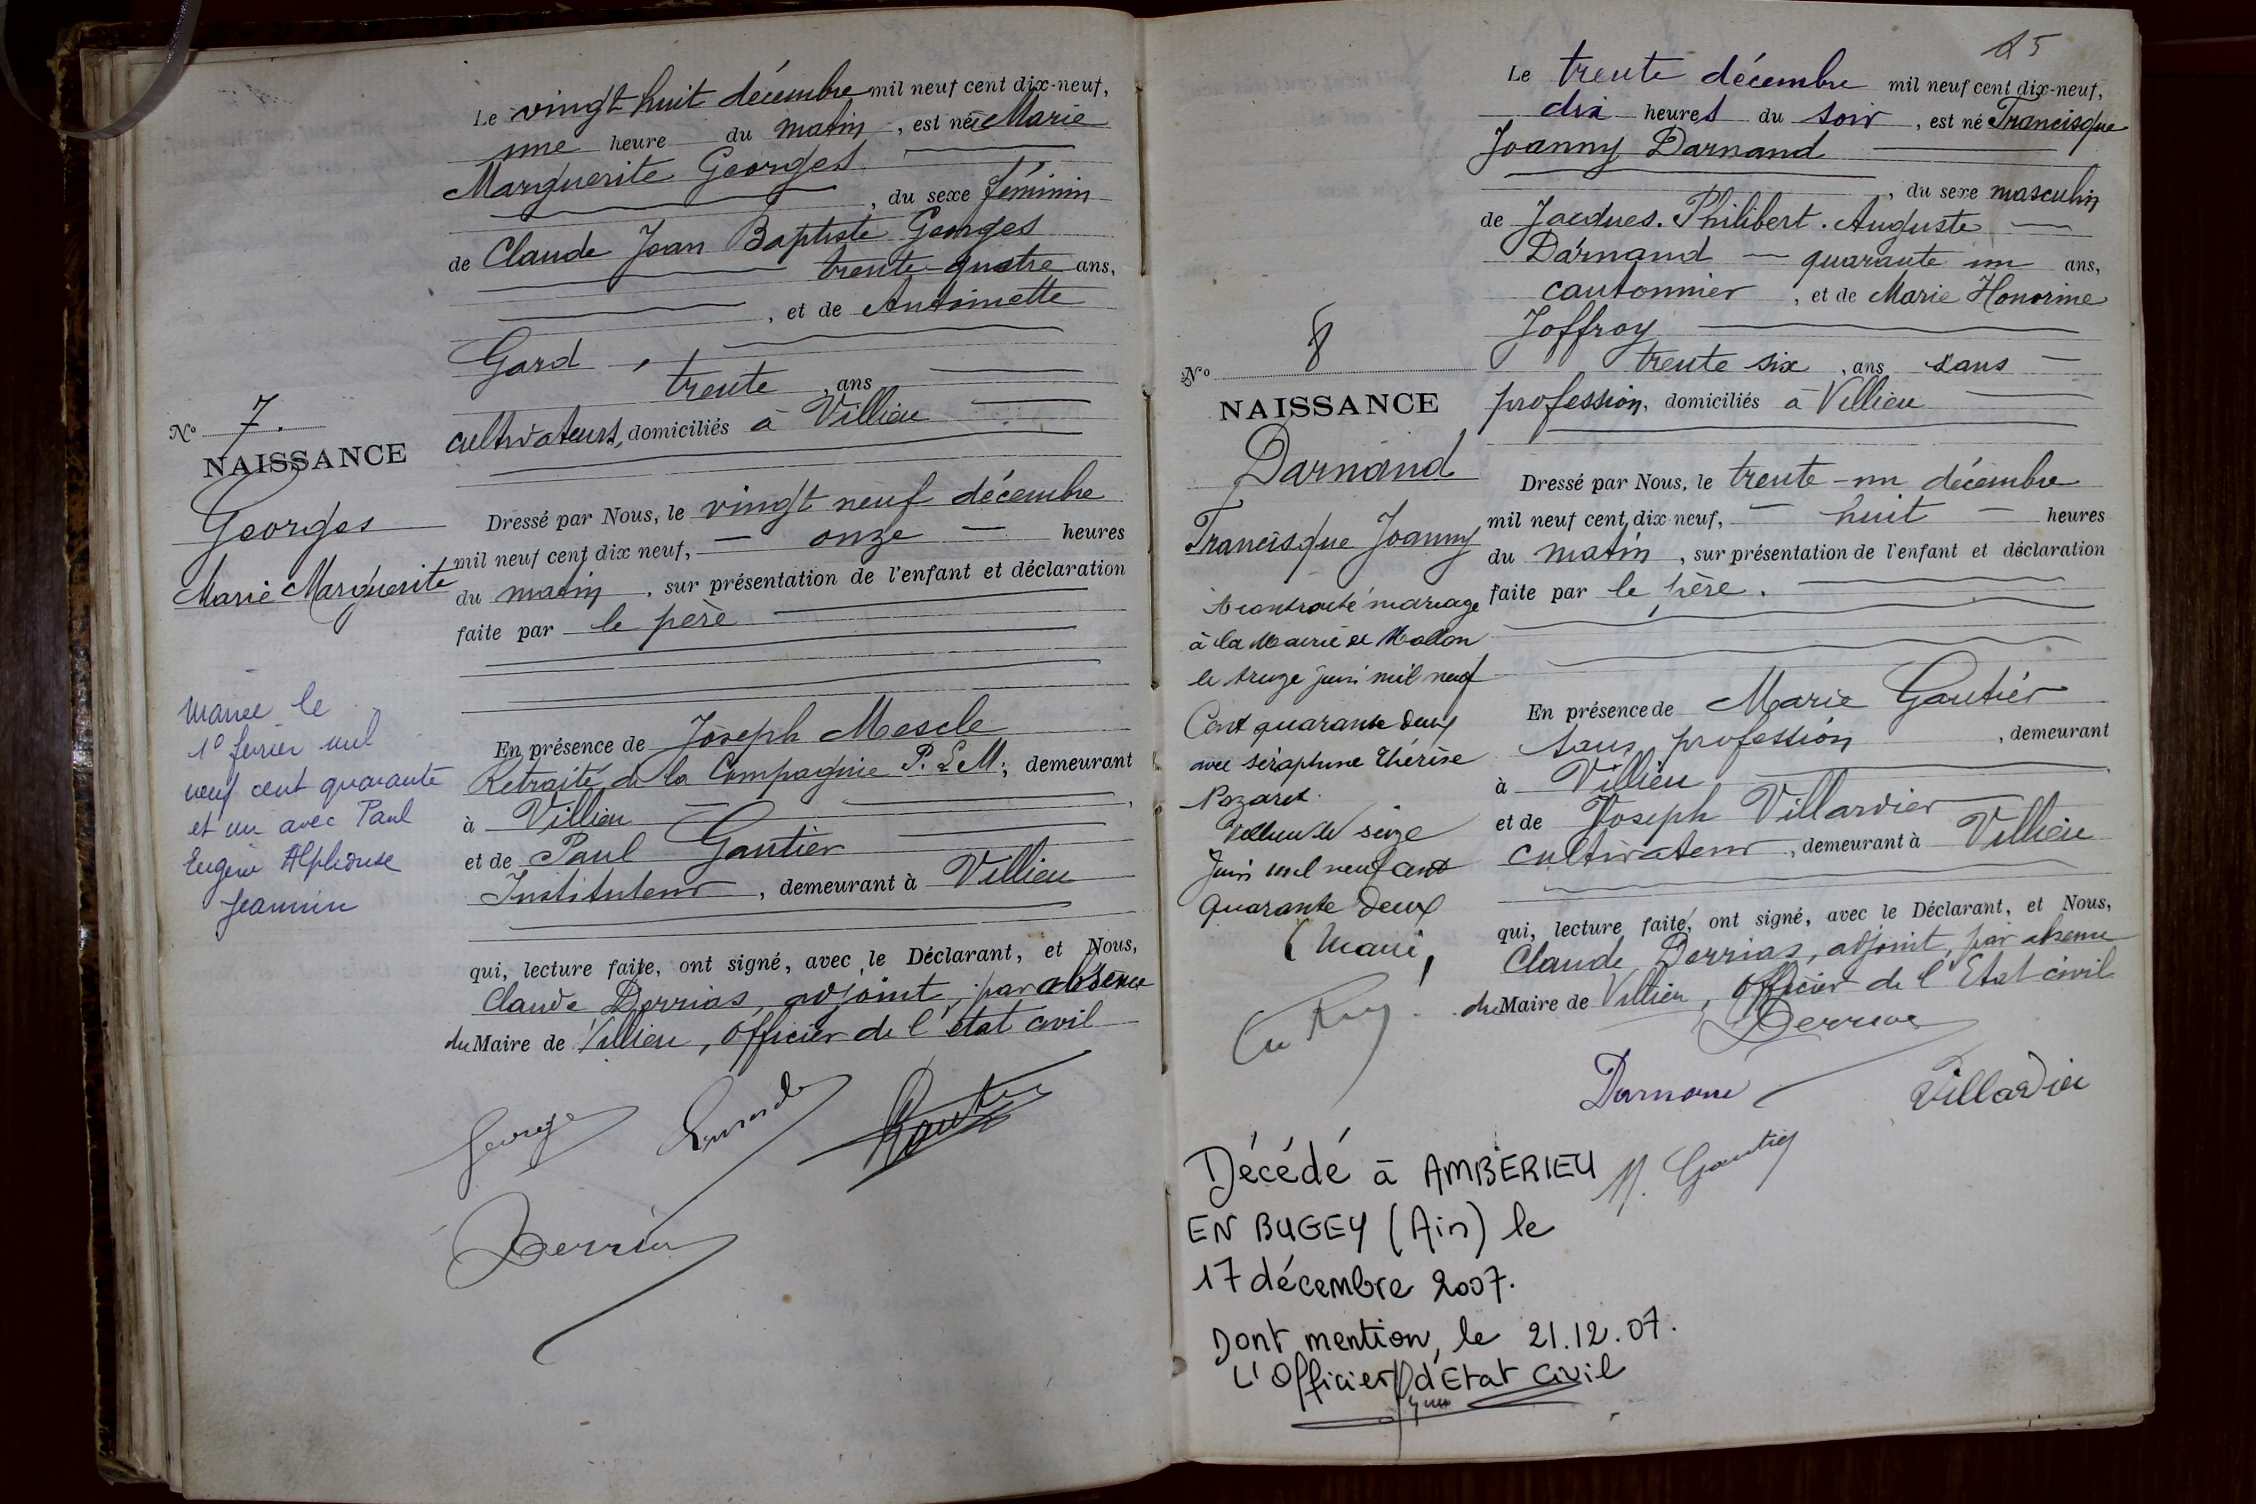 Le vingt huit décembre mil neuf cent dix-neuf,
une heure du matin, est née Marie
Marguerite Georges
, du sexe féminin
de Claude Jean Baptiste Georges
trente-quatre ans,
, et de Antoinette
Gard,
trente, ans
cultivateurs, domiciliés à Villieu
No 7.
NAISSANCE
Georges
Marie Marguerite
Dressé par Nous, le vingt neuf décembre
mil neuf cent dix neuf, - onze - heures
du matin, sur présentation de l'enfant et déclaration
faite par le père
Mariée le
1er février mil
neuf cent quarante
et un avec Paul
Eugène Alphonse
Jeannin
En présence de Joseph Mescle
Retraité de la Compagnie P.L.M., demeurant
à Villieu
et de Paul Gautier
Instituteur, demeurant à Villieu
qui, lecture faite, ont signé, avec le Déclarant, et Nous,
Claude Derrias, adjoint, par absence
du Maire de Villieu, officier de l'état civil
Georges
Gautier
Derrias
25
Le trente décembre mil neuf cent dix-neuf,
dix heures du soir, est né Francisque
Joanny Darnand
, du sexe masculin
de Jacques. Philibert. Auguste
Darnand - quarante un ans,
cantonnier, et de Marie Honorine
Joffroy
trente six, ans sans -
profession, domiciliés à Villieu
No 8
NAISSANCE
Darnand
Francisque Joanny
Dressé par Nous, le trente-un décembre
mil neuf cent dix-neuf, - huit - heures
du matin, sur présentation de l'enfant et déclaration
faite par le père.
A contracté mariage
à la Mairie de Mollon
le treize juin mil neuf
Cent quarante deux
avec Séraphine Thérèse
Villieu le seize
Juin mil neuf cent
quarante deux
Le Maire,
En présence de Marie Gautier
sans profession, demeurant
à Villieu
et de Joseph Villardier
cultivateur, demeurant à Villieu
qui, lecture faite, ont signé, avec le Déclarant, et Nous,
Claude Derrias, adjoint, par absence
du Maire de Villieu, Officier de l'Etat civil
Derrias
Darnand
Villardier
M. Gautier
Décédé à AMBERIEU
EN BUGEY (Ain) le
17 décembre 2007.
Dont mention, le 21.12.07.
L'Officier d'Etat Civil